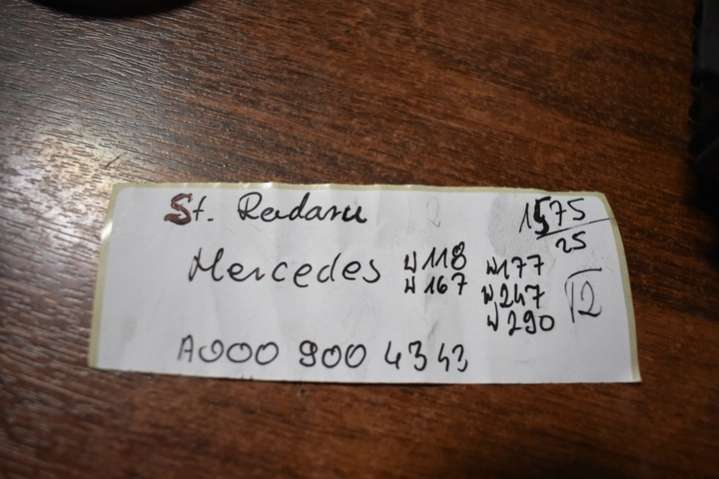 St. Radaru 1575/25
Mercedes W118 W177
W167 W247
W290 12
A000 900 4343